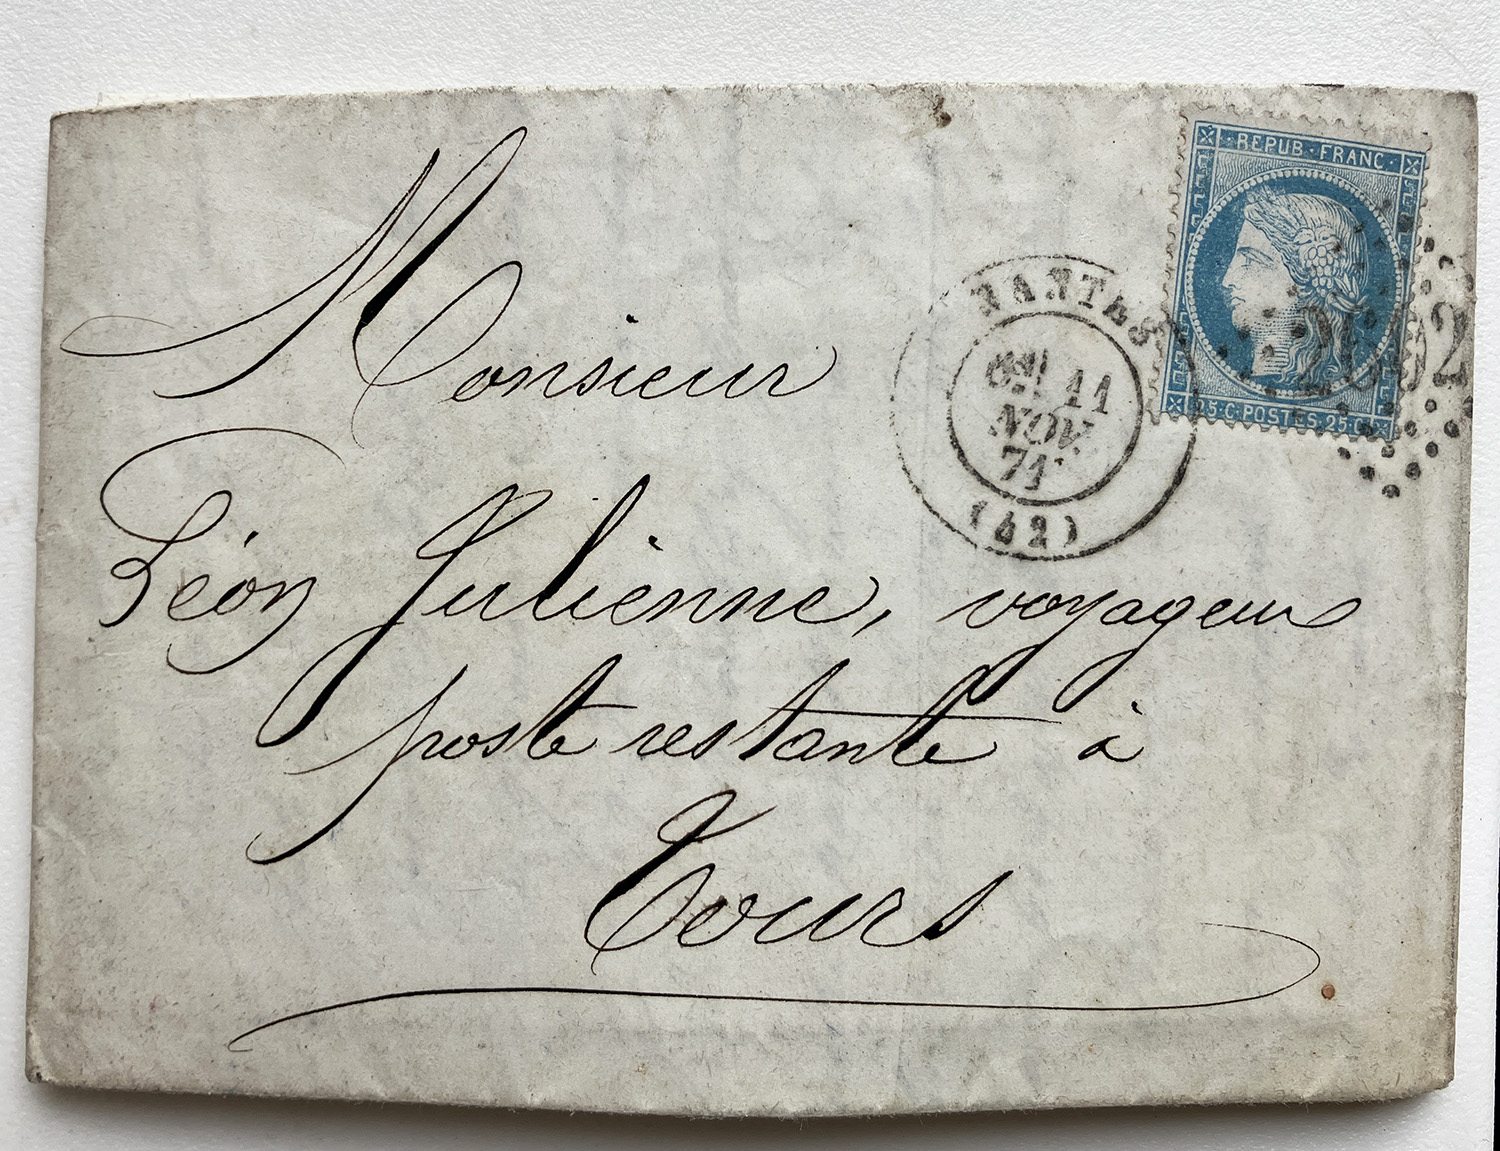 REPUB·FRANC·
25·C·POSTES·25·C
2602
NANTES
11
NOV.
71
(42)
Monsieur
Léon Julienne, voyageur
poste restante à
Tours